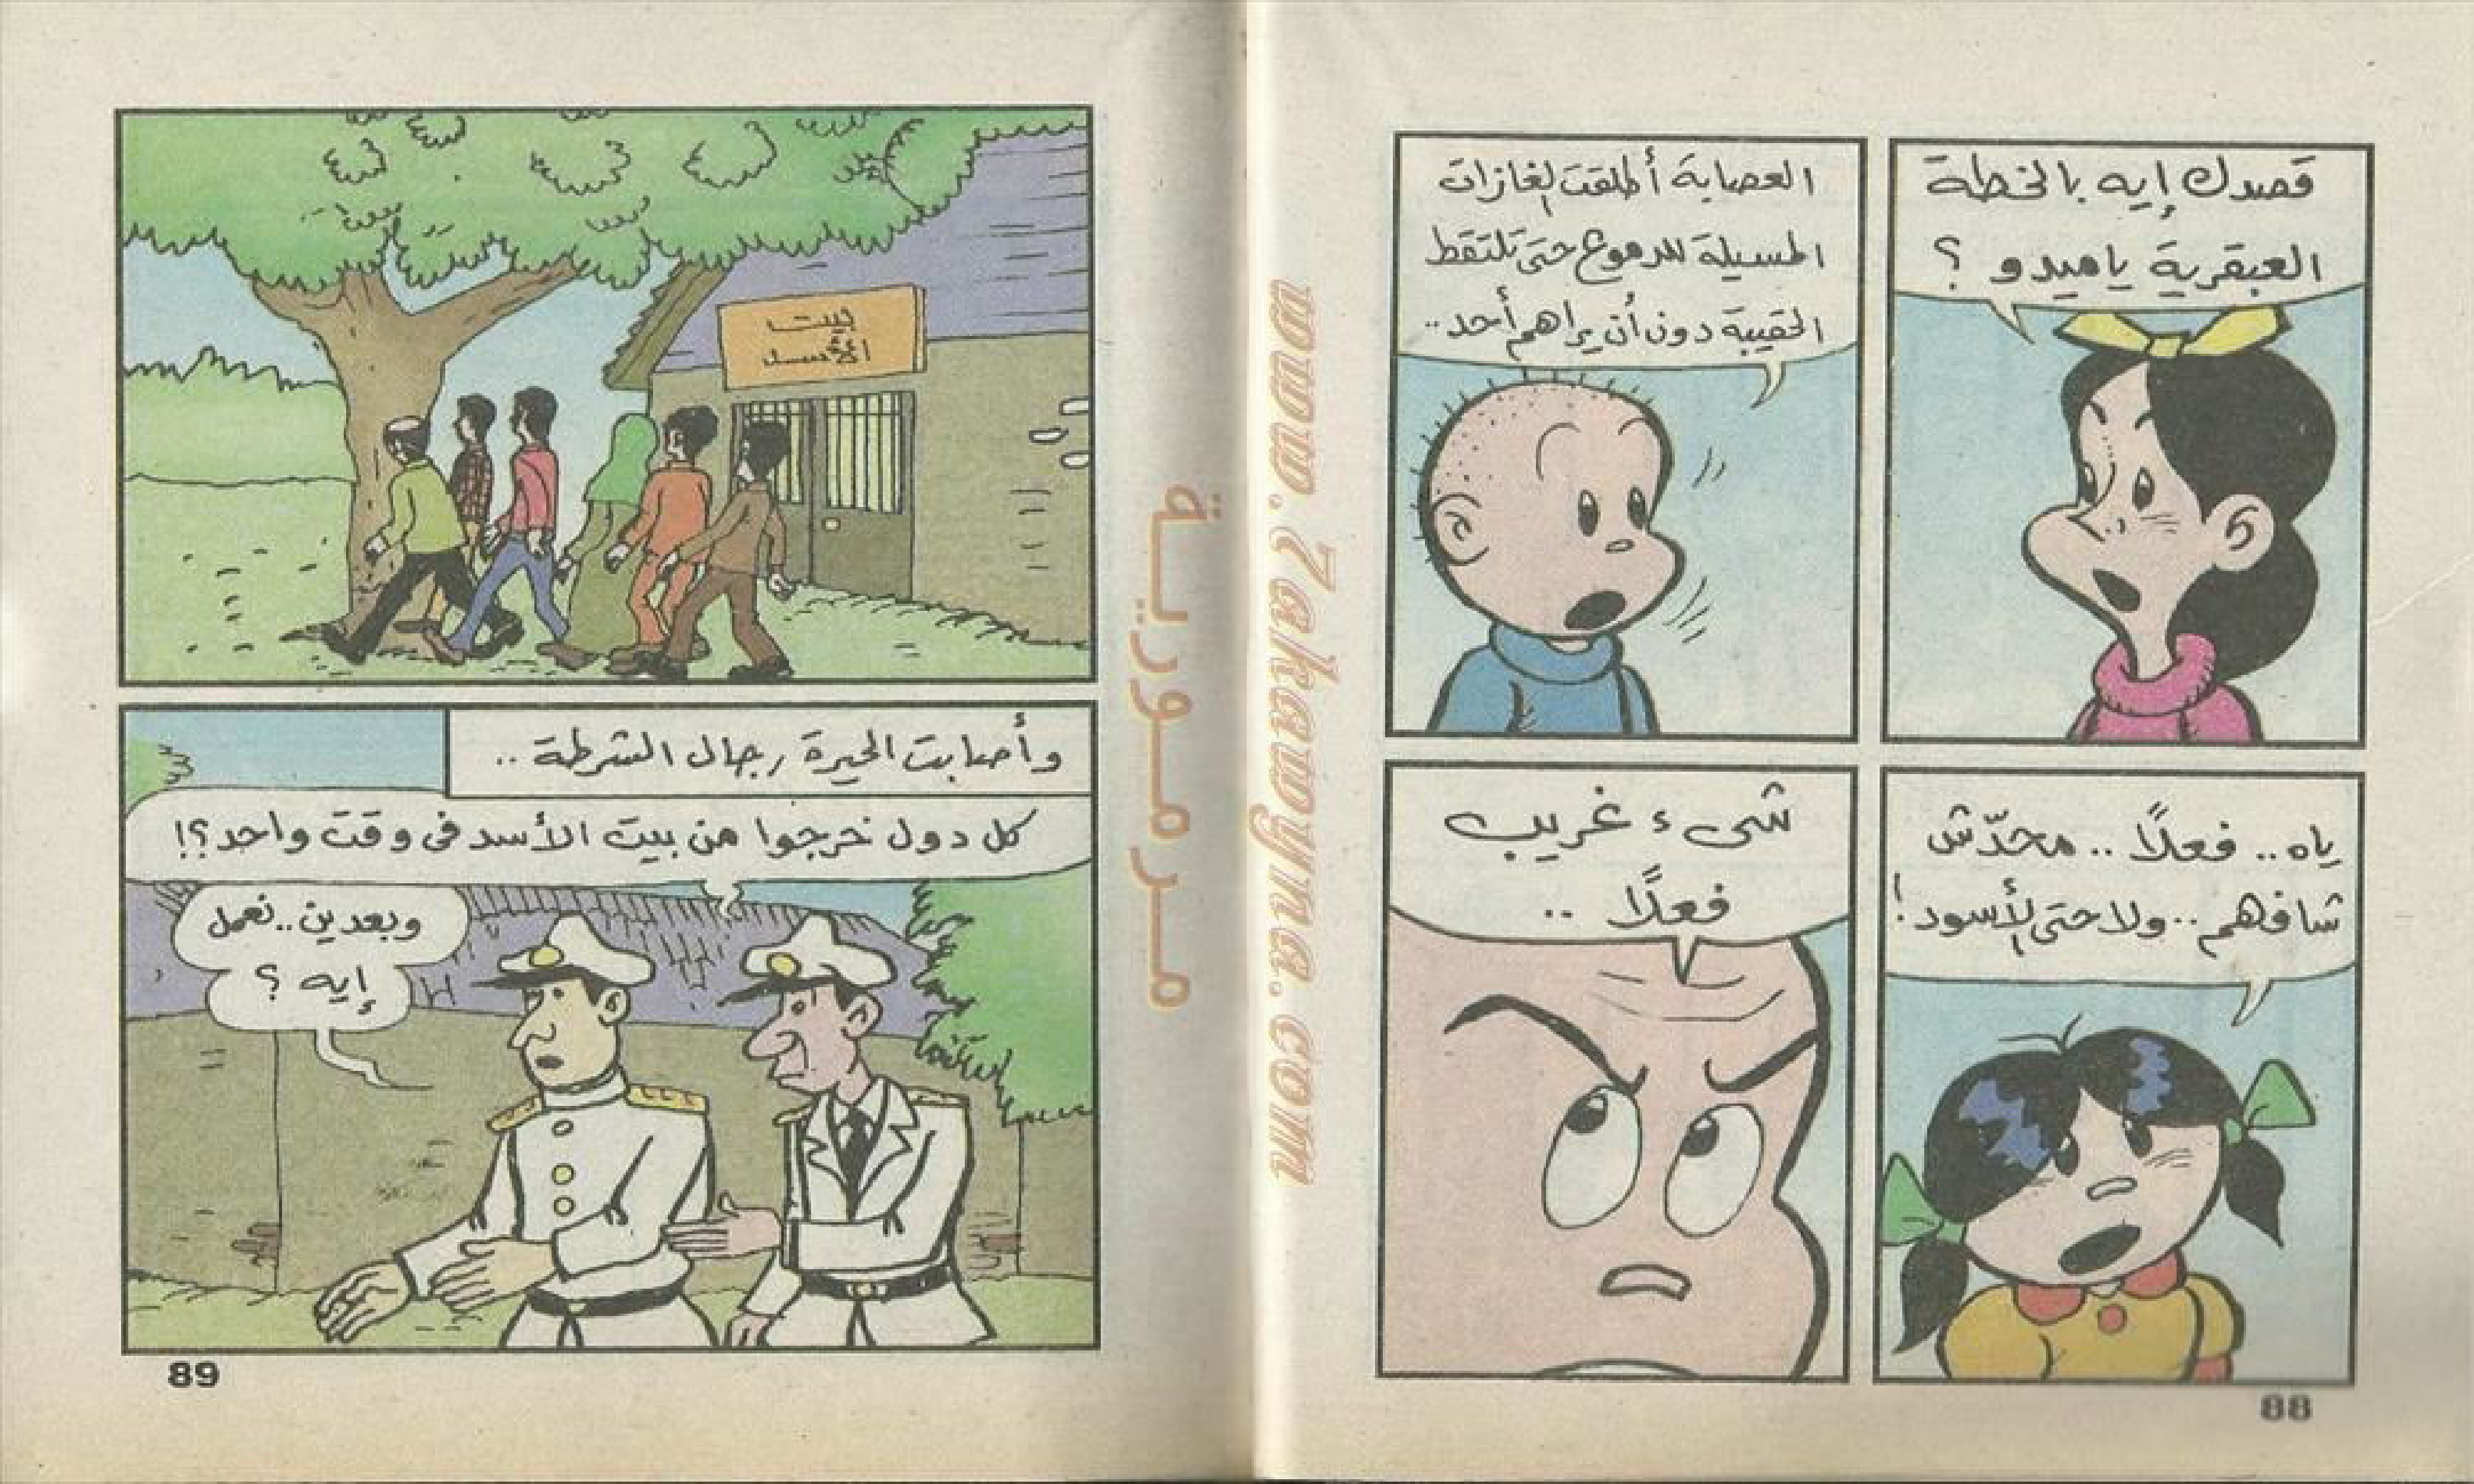 قصدك إيه بالخطة
العبقرية ياميدو ؟
العصابة أطلقت الغازات
المسيلة للدموع حتى تلتقط
الحقيبة دون أن يراهم أحد..
ياه.. فعلاً.. محدّش
شافهم.. ولا حتى الأسود!
شىء غريب
فعلاً ..
88
www.7akawyna.com
مرمورية
بيت
الأسد
وأصابت الحيرة رجال الشرطة ..
كل دول خرجوا من بيت الأسد فى وقت واحد؟!
وبعدين.. نعمل
إيه ؟
89